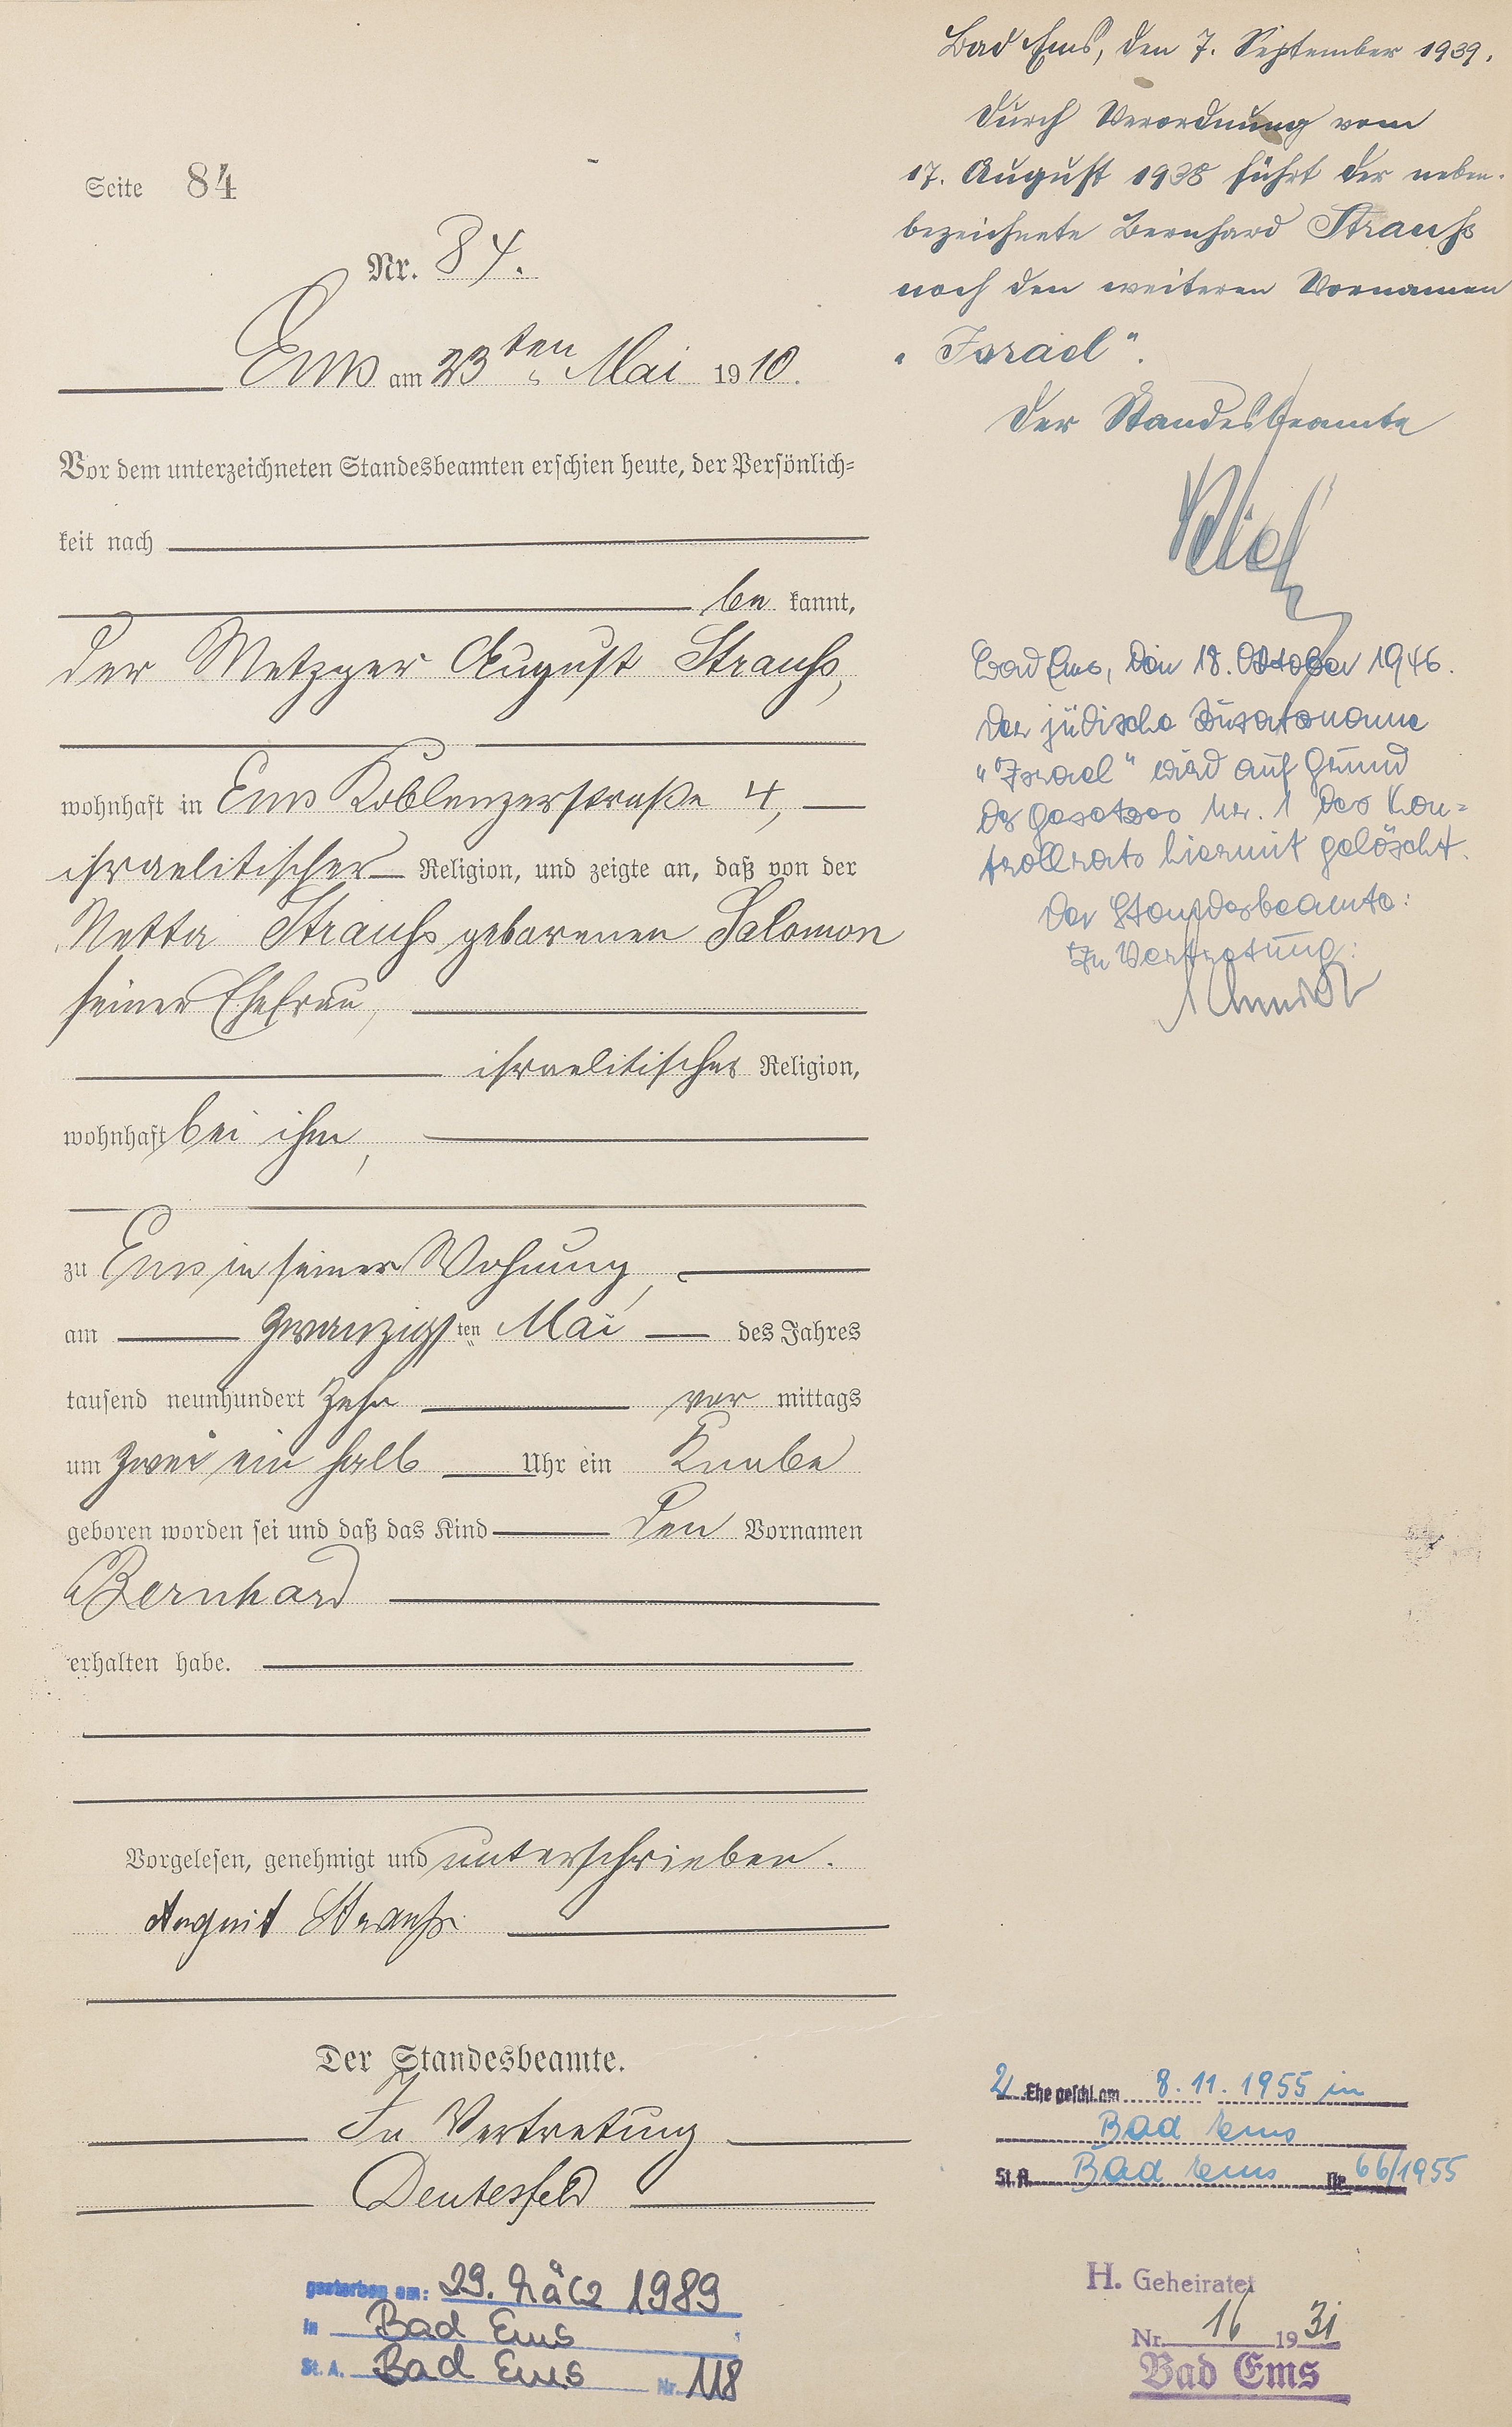 Seite 84
Nr. 84.
Ems am 23ten Mai 1910.
Vor dem unterzeichneten Standesbeamten erschien heute, der Persönlich=
keit nach
be kannt,
der Metzger August Strauß,
wohnhaft in Ems Koblenzerstraße 4,
israelitischer Religion, und zeigte an, daß von der
Netta Strauß geborenen Salomon
seiner Ehefrau,
israelitischer Religion,
wohnhaft bei ihm,
zu Ems in seiner Wohnung,
am zwanzigsten Mai des Jahres
tausend neunhundert zehn vor mittags
um zwei ein halb Uhr ein Knabe
geboren worden sei und daß das Kind den Vornamen
Bernhard
erhalten habe.
Vorgelesen, genehmigt und unterschrieben.
August Strauß
Der Standesbeamte.
In Vertretung
Deutesfeld
gestorben am: 29. März 1989
in Bad Ems
St. A. Bad Ems Nr. 118
Bad Ems, den 7. September 1939.
Durch Verordnung vom
17. August 1938 führt der neben-
bezeichnete Bernhard Strauß
noch den weiteren Vornamen
"Israel".
Der Standesbeamte
Bad Ems, den 18. Oktober 1946.
Der jüdische Zusatzname
"Israel" wird auf Grund
des Gesetzes Nr. 1 des Kon=
trollrats hiermit gelöscht.
Der Standesbeamte:
In Vertretung:
Schmidt
2. Ehe geschl. am 8.11.1955 in
Bad Ems
St. A. Bad Ems Nr. 66/1955
H. Geheiratet
Nr. 16 1931
Bad Ems